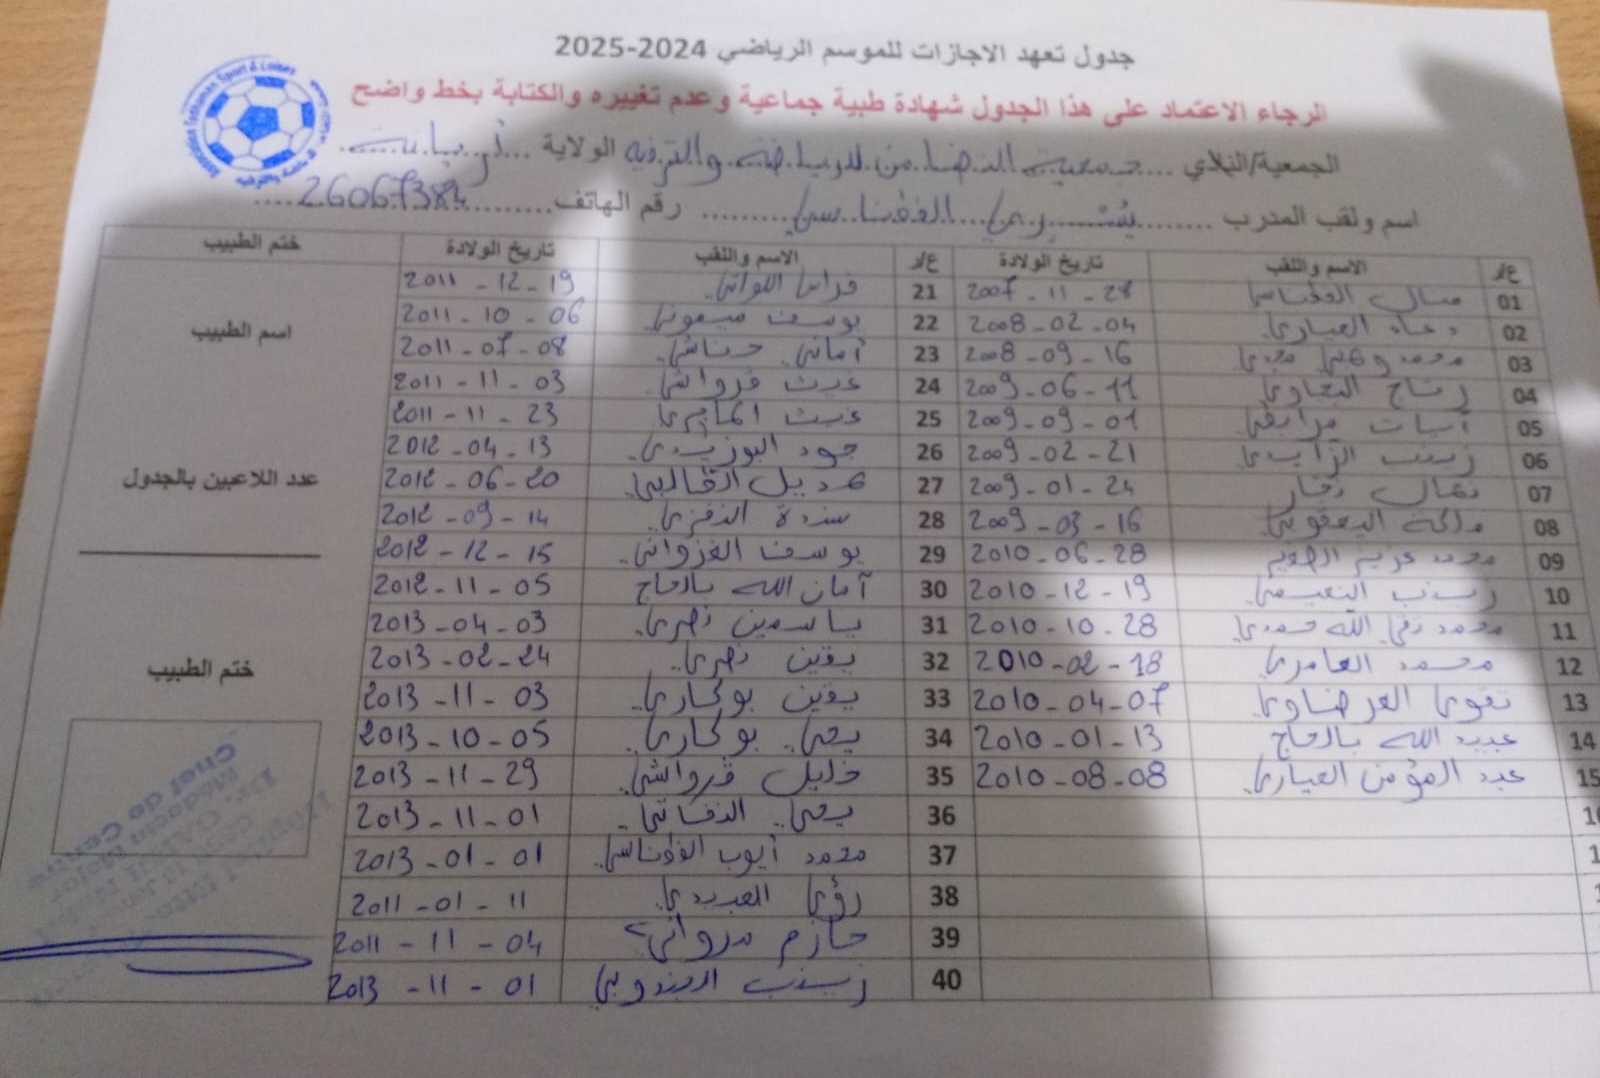 جدول تعهد الاجازات للموسم الرياضي 2024-2025
الرجاء الاعتماد على هذا الجدول شهادة طبية جماعية وعدم تغييره والكتابة بخط واضح
الجمعية/النادي ....جمعية التضامن للرياضة والترفيه الولاية ...أريانة.....
اسم ولقب المدرب ........ يسري الفقناسي ........ رقم الهاتف.........26067384....
ع/ر الاسم واللقب تاريخ الولادة ع/ر الاسم واللقب تاريخ الولادة ختم الطبيب
01 2007-11-28 21 فراس اللواتي 2011-12-19
02 دعاء العياري 2008-02-04 22 يوسف ميموني 2011-10-06
03 محمد 2008-09-16 23 أماني حناشي 2011-07-08
04 رتاج 2009-06-11 24 غيث فرواشي 2011-11-03
05 آيات مرابطي 2009-09-01 25 غيث الماجري 2011-11-23
06 زينب الزايدي 2009-02-21 26 جود البوزيدي 2012-04-13
07 نهال 2009-01-24 27 هديل القالبي 2012-06-20
08 ملكة اليعقوبي 2009-03-16 28 سندة النفزي 2012-09-14
09 محمد عزيز 2010-06-28 29 يوسف الغزواني 2012-12-15
10 زينب النعيمي 2010-12-19 30 أمان الله بالحاج 2012-11-05
11 محمد تقي الله حمدي 2010-10-28 31 ياسمين نصري 2013-04-03
12 محمد العامري 2010-02-18 32 يقين نصري 2013-02-24
13 تقوى العرضاوي 2010-04-07 33 يقين بوكاري 2013-11-03
14 عبيد الله بالحاج 2010-01-13 34 يحي بوكاري 2013-10-05
15 عبد المؤمن العياري 2010-08-08 35 خليل فرواشي 2013-11-29
36 يحي النفاتي 2013-11-01
37 محمد أيوب 2013-01-01
38 رؤى العبيدي 2011-01-11
39 حازم مرواني 2011-11-04
40 زينب الجندوبي 2013-11-01
اسم الطبيب
عدد اللاعبين بالجدول
ختم الطبيب